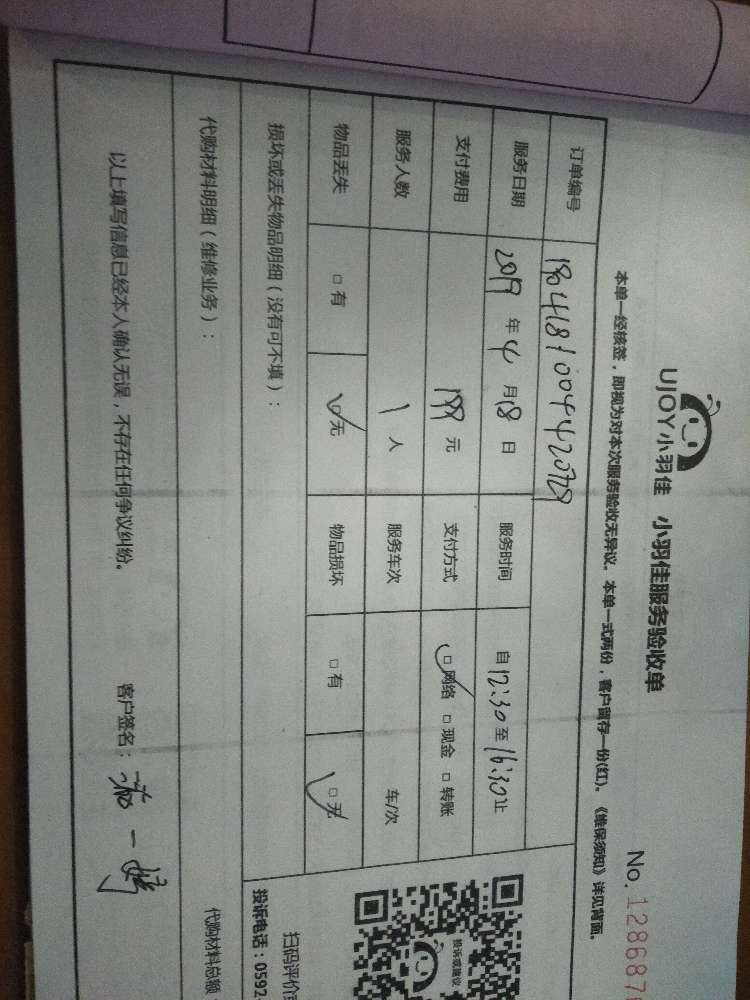 UJOY小羽佳 小羽佳服务验收单
No. 128687
本单一经核签，即视为对本次服务验收无异议。本单一式两份，客户留存一份(红)。《维保须知》详见背面。
订单编号
服务日期 2019 年 4 月 18 日 服务时间 自 12:30 至 16:30 止
支付费用 199 元 支付方式 □ 网络 □ 现金 □ 转账
服务人数 1 人 服务车次 车/次
物品丢失 □ 有 □ 无 物品损坏 □ 有 □ 无
损坏或丢失物品明细（没有可不填）：
投诉或建议
扫码评价
投诉电话：0592
代购材料明细（维修业务）：
代购材料总额
以上填写信息已经本人确认无误，不存在任何争议纠纷。 客户签名：